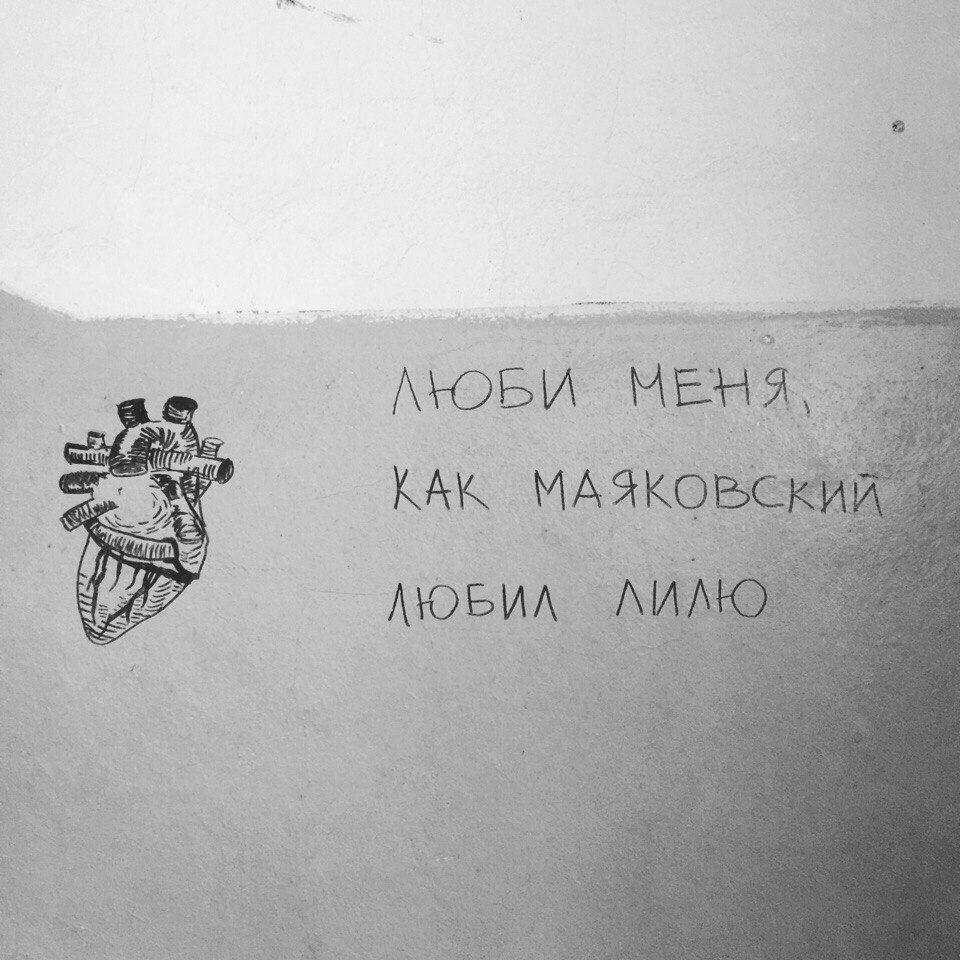 ЛЮБИ МЕНЯ,
КАК МАЯКОВСКИЙ
ЛЮБИЛ ЛИЛЮ